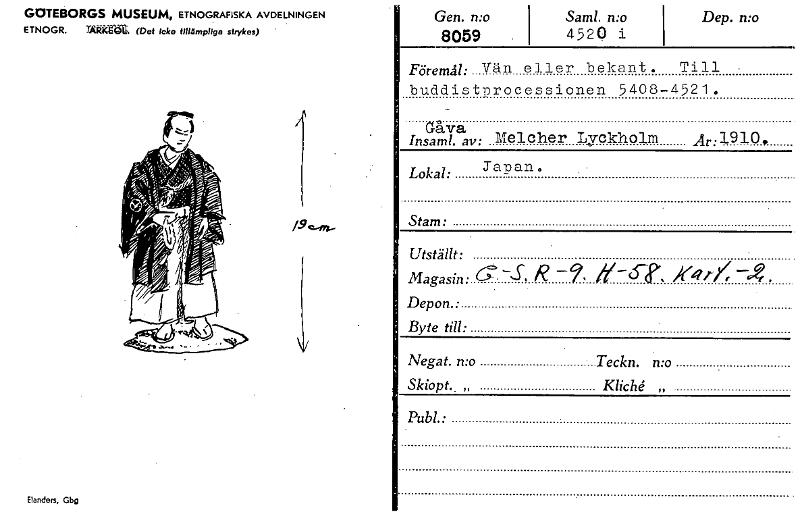 GÖTEBORGS MUSEUM, ETNOGRAFISKA AVDELNINGEN
ETNOGR. ARKEOL. (Det icke tillämpliga strykes)
19 cm
Elanders, Gbg
Gen. n:o Saml. n:o Dep. n:o
8059 4520 i
Föremål: Vän eller bekant. Till
buddistprocessionen 5408-4521.
Gåva
Insaml. av: Melcher Lyckholm År: 1910.
Lokal: Japan.
Stam:
Utställt:
Magasin: G-S. R-9. H-58. Kart.-2.
Depon.:
Byte till:
Negat. n:o Teckn. n:o
Skiopt. „ Kliché „
Publ.: